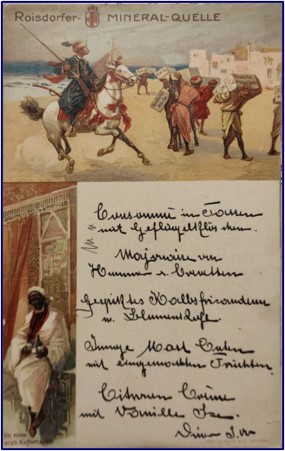 Roisdorfer- MINERAL-QUELLE
Consommé in Tassen
mit Geflügelklöschen.
Majonaise von
Hummer
Gespicktes Kalbsfricandeau
m. Blumenkohl.
Junge Mast Enten
mit eingemachten Früchten.
Citronen Crème
mit Vanille